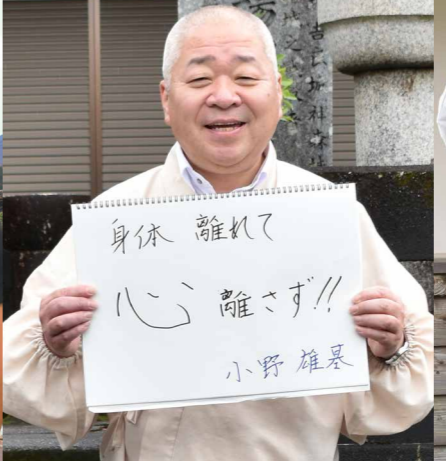 身体 離れて
心 離さず!!
小野 雄基